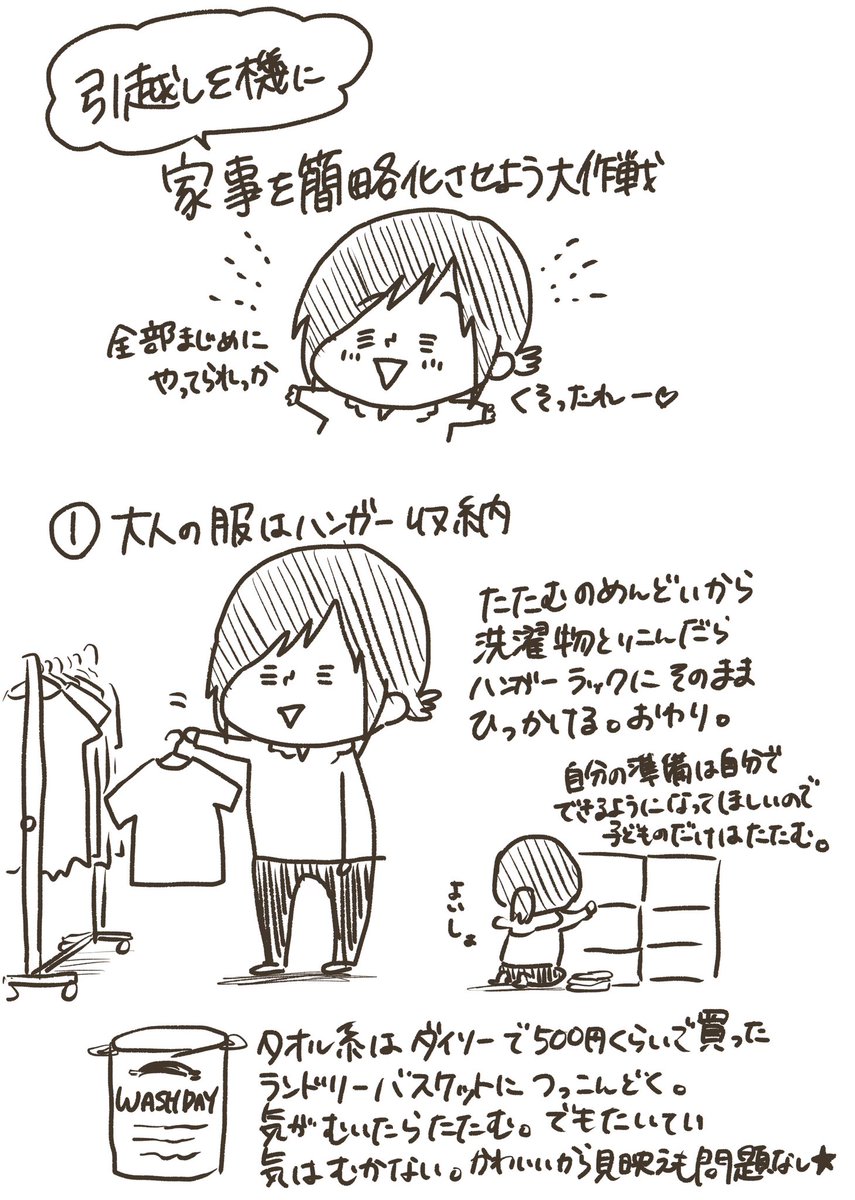 引越しを機に
家事を簡略化させよう大作戦
全部まじめに
やってられっか
くそったれー♡
① 大人の服はハンガー収納
たたむのめんどいから
洗濯物とりこんだら
ハンガーラックにそのまま
ひっかける。おわり。
自分の準備は自分で
できるようになってほしいので
子どものだけはたたむ。
よいしょ
WASHDAY
タオル系はダイソーで500円くらいで買った
ランドリーバスケットにつっこんどく。
気がむいたらたたむ。でもたいてい
気はむかない。かわいいから見映えも問題なし★